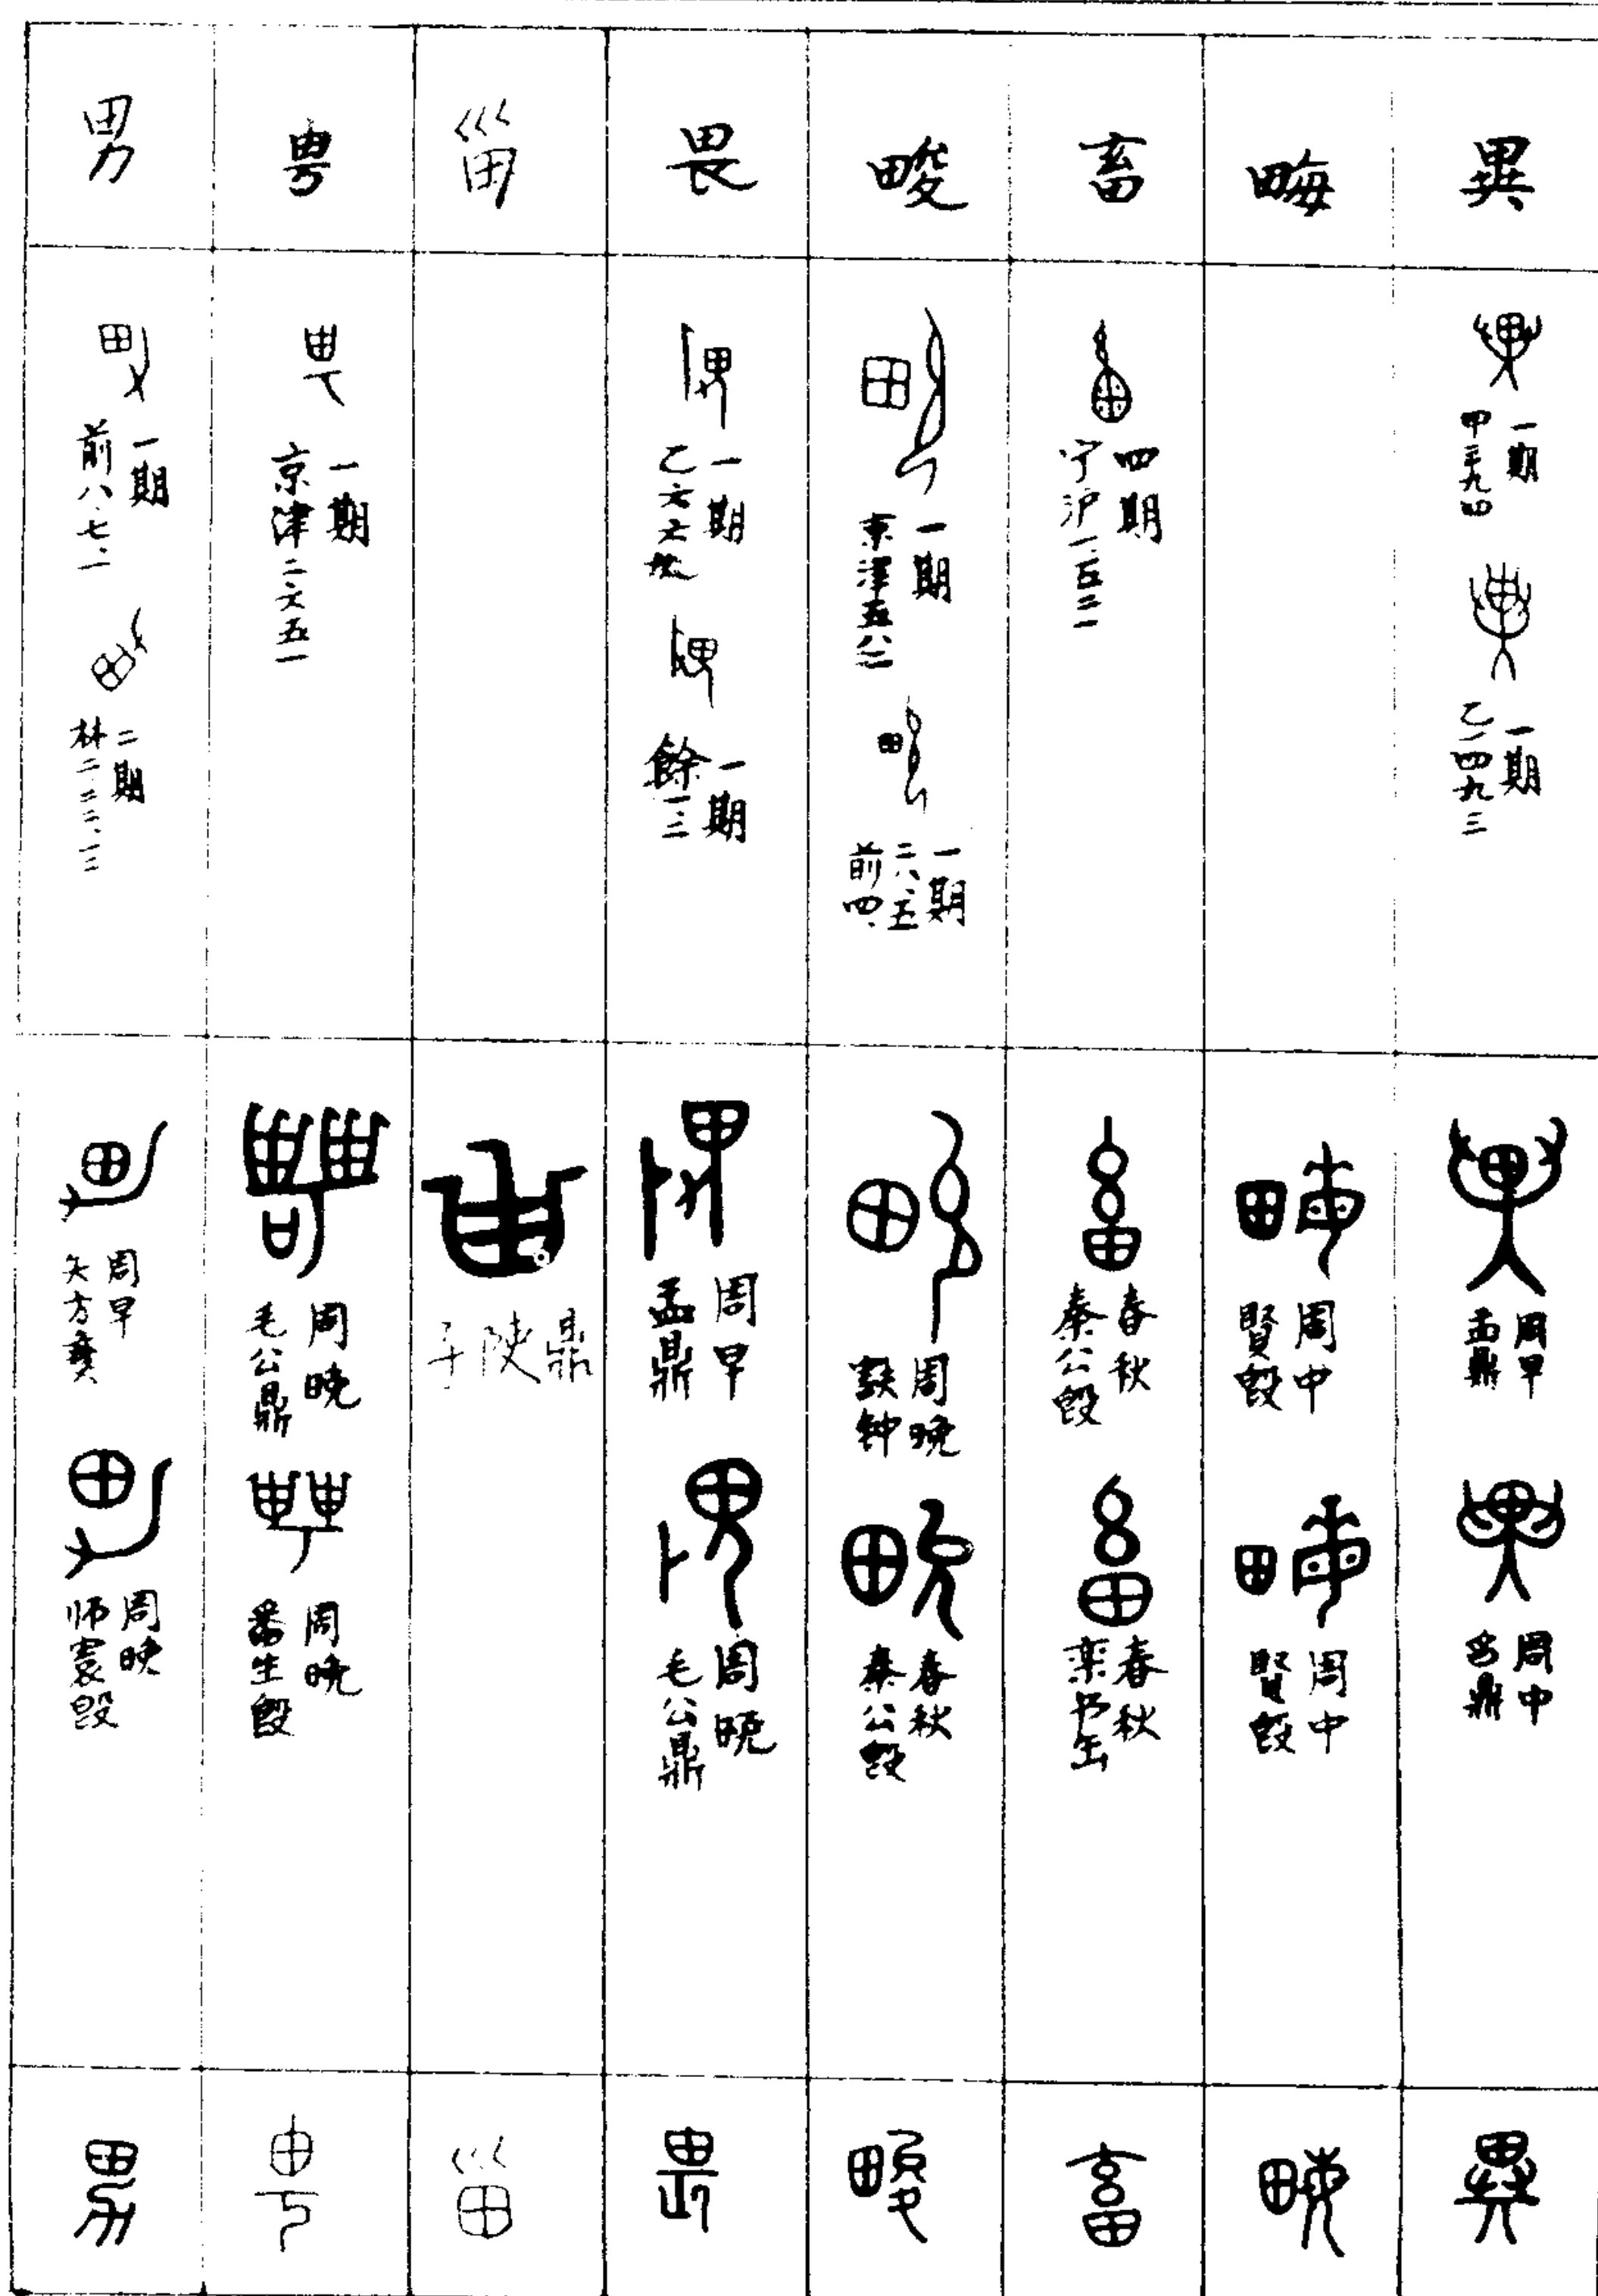 異
一期
甲三九四
一期
乙一四九三
周早
盂鼎
周中
舀鼎
異
畮
周中
賢𣪘
周中
賢𣪘
畮
畜
四期
宁沪一.五二一
春秋
秦公𣪘
春秋
栾书缶
畜
畯
一期
京津五八二
一期
前四.
二八.五
周晚
㝬钟
春秋
秦公𣪘
畯
畏
一期
乙六六九
一期
餘一.三
周早
盂鼎
周晚
毛公鼎
畏
甾
子陝鼎
甾
甹
一期
京津二六五一
周晚
毛公鼎
周晚
番生𣪘
甹
男
一期
前八.七.一
二期
林二.二二.一二
周早
矢方彝
周晚
师寰𣪘
男